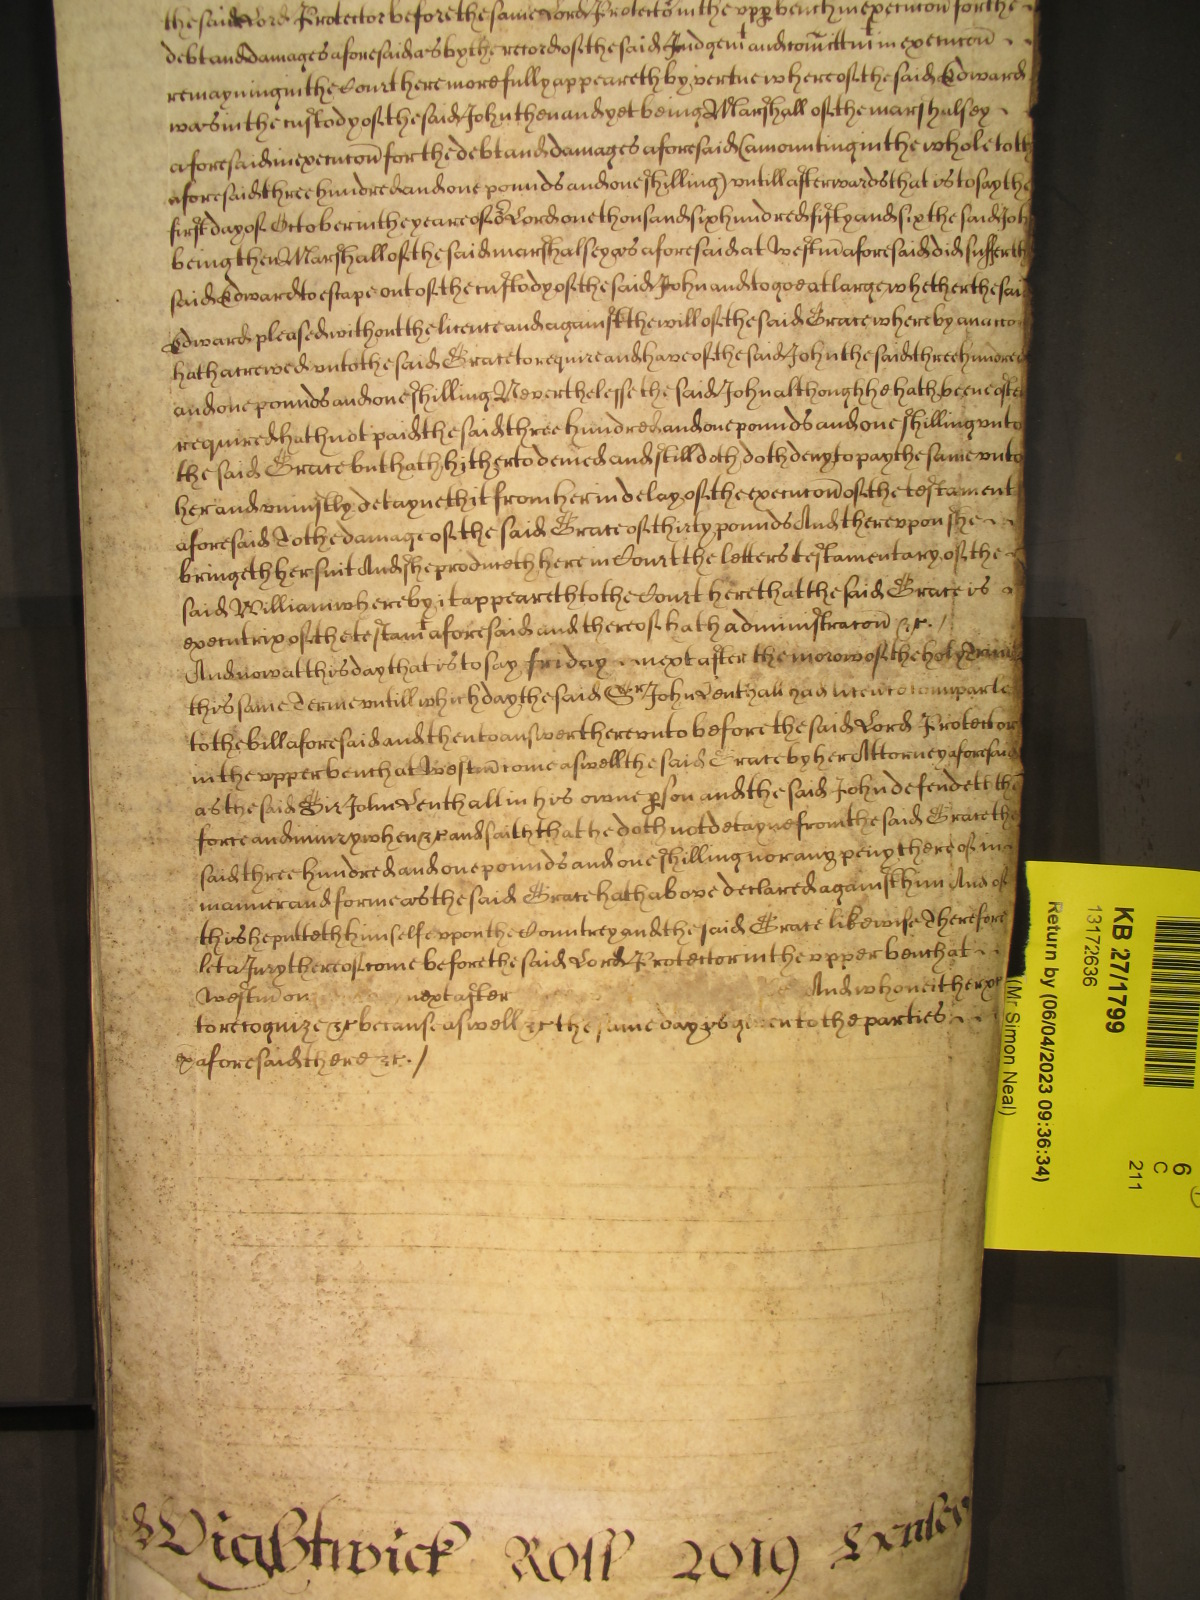 the said Lord Protector before the same Lord Protector in the upp bench in execucon for the
debt and damages aforesaid as by the record of the said Judgemt and comittmt in execucon
remayning in the Court here more fully appeareth by vertue whereof the said Edward
was in the custody of the said John then and yet being Marshall of the marshalsey
aforesaid in execucon for the debt and damages aforesaid (amounting in the whole to th
aforesaid three hundred and one pounds and one shilling) untill afterwards that is to say the
first day of October in the yeare of or Lord one thousand six hundred fifty and six the said Joh
being then Marshall of the said marshalsey as aforesaid at Westm aforesaid did suffer th
said Edward to escape out of the custody of the said John and to goe at large whether the sai
Edward pleased without the licence and against the will of the said Grace whereby an acco
hath acrewed unto the said Grace to require and have of the said John the said three hundred
and one pounds and one shilling Neverthelesse the said John although he hath beene often
required hath not paid the said three hundred and one pounds and one shilling unto
the said Grace but hath hitherto denied and still doth doth deny to pay the same unto
her and uniustly detayneth it from her in delay of the execucon of the testament
aforesaid To the damage of the said Grace of thirty pounds And thereupon she
bringeth her suit And she produceth here in Court the letters testamentary of the
said William whereby it appeareth to the Court here that the said Grace is
executrix of the testamt aforesaid and thereof hath administracon &c.
And now at this day that is to say friday next after the morow of the holy Trinit
this same Terme untill which day the said Sr John Lenthall had licence to imparle
to the bill aforesaid and then to answer thereunto before the said Lord Protector
in the upper bench at Westm come aswell the said Grace by her Attorney aforesaid
as the said Sir John Lenthall in his owne pson and the said John defendeth the
force and iniury when &c and saith that he doth not detayne from the said Grace the
said three hundred and one pounds and one shilling nor any peny thereof in
manner and forme as the said Grace hath above declared against him And of
this he putteth himselfe upon the Countrey and the said Grace likewise Therefore
let a Jury thereof come before the said Lord Protector in the upper bench at
Westm on next after And who neither
to recognize &c because aswell &c the same day is given to the parties
aforesaid there &c.
Wightwick Roll 2019
KB 27/1799
13172636
Return by (06/04/2023 09:36:34)
(Mr Simon Neal)
6
C
211